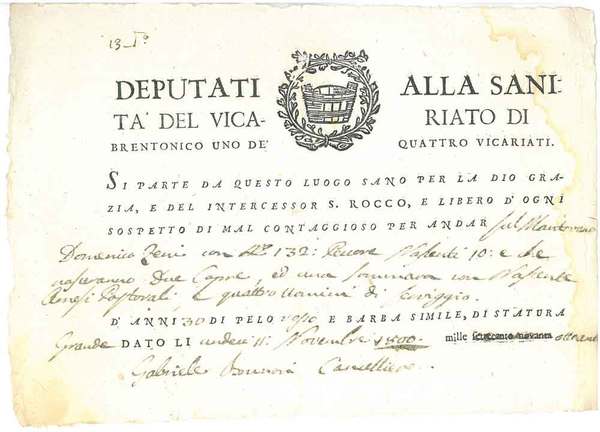 13 To
DEPUTATI ALLA SANI-
TA' DEL VICA- RIATO DI
BRENTONICO UNO DE' QUATTRO VICARIATI.
SI PARTE DA QUESTO LUOGO SANO PER LA DIO GRA-
ZIA, E DEL INTERCESSOR S. ROCCO, E LIBERO D'OGNI
SOSPETTO DI MAL CONTAGGIOSO PER ANDAR sul Mantovano
Domenico Zeni con No 132: Pecore Nascenti 10: e che
nasceranno Due Capre, ed una Sommara con Nascente
Arnesi Pastorali, e quattro uomini di serviggio.
D'ANNI 30 DI PELO rosso E BARBA SIMILE, DI STATURA
Grande DATO LI undeci 11: Novembre 1800 mille settecento novanta
Gabriele Cancelliere